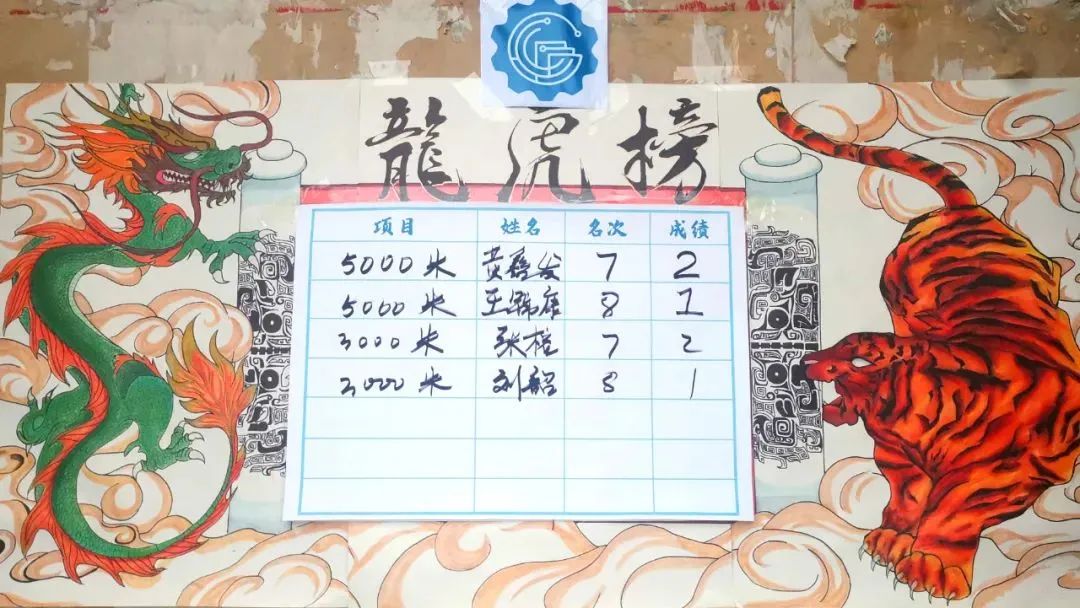 龍虎榜
项目 姓名 名次 成绩
5000米 黄 发 7 2
5000米 王锦 8 1
3000米 张 7 2
3000米 刘韶 8 1